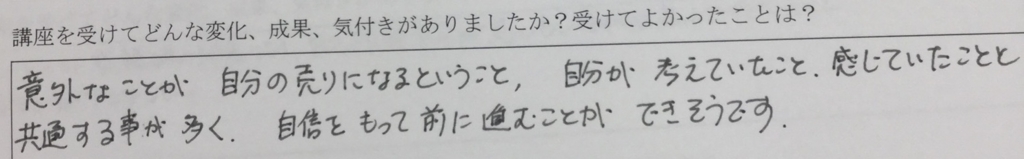 講座を受けてどんな変化、成果、気付きがありましたか？受けてよかったことは？
意外なことが 自分の売りになるということ, 自分が 考えていたこと、感じていたことと
共通する事が 多く、 自信をもって前に進むことが できそうです.